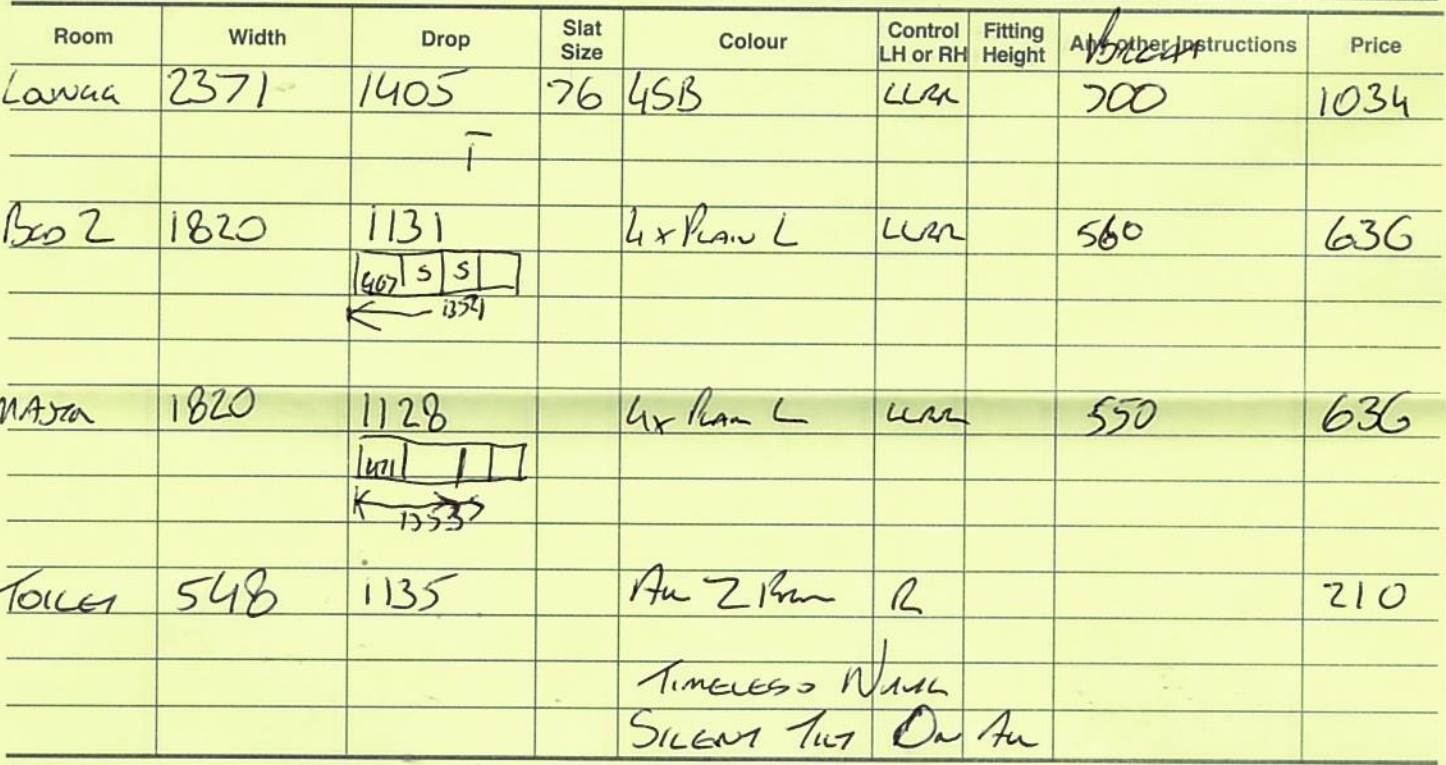 Room Width Drop Slat Size Colour Control LH or RH Fitting Height Any other Instructions Price
2371 1405 76 4SB LLRR 700 1034
T
Bed 2 1820 1131 4 x Plain L LLRR 560 636
467 S S
1354
Master 1820 1128 4x Plain L LLRR 550 636
471
1353
Toilet 548 1135 R 210
Timeless
Silent Tilt On All